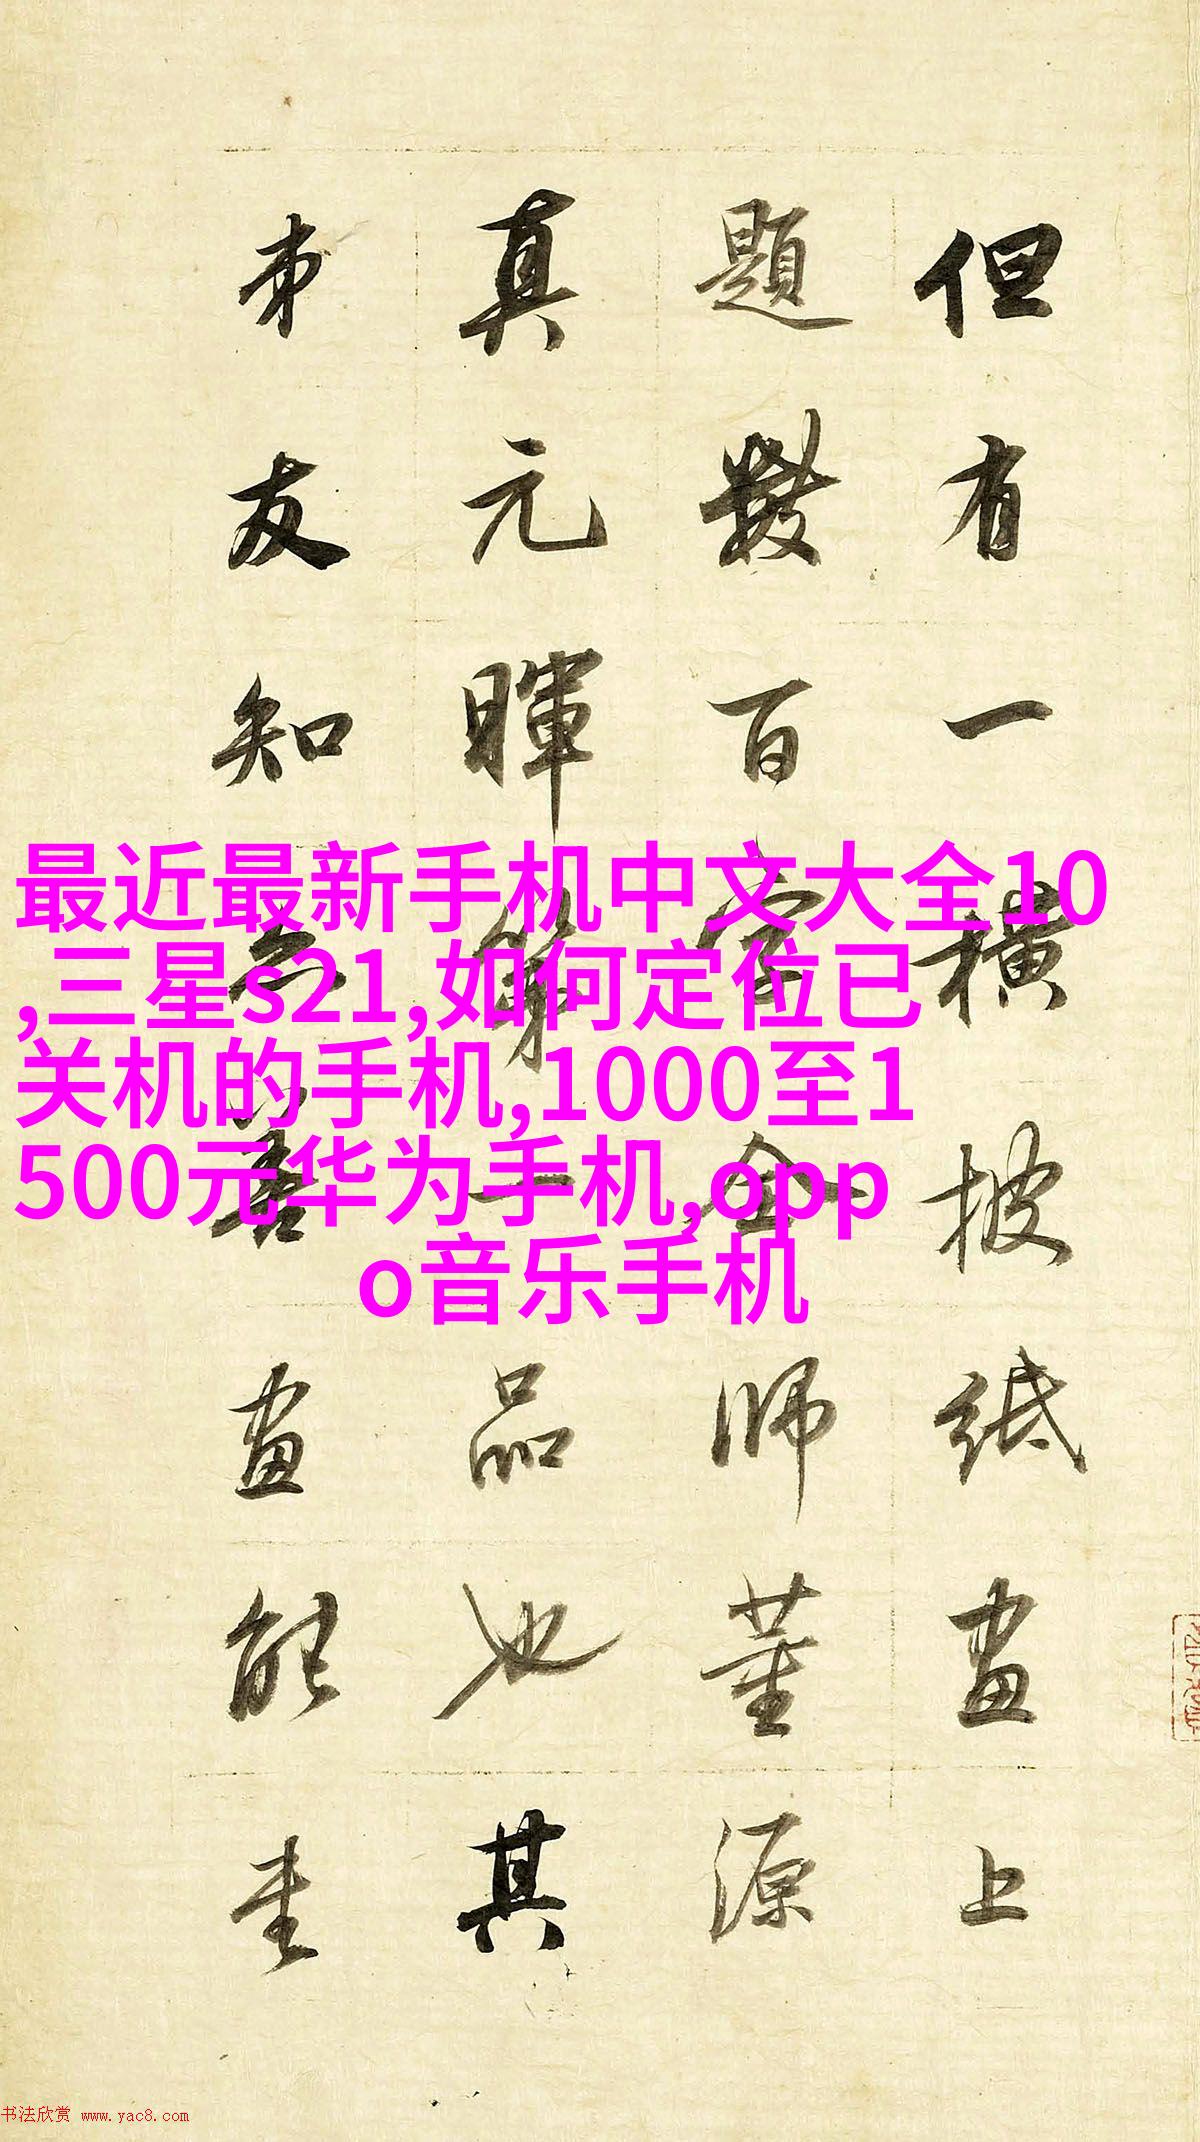 但有一横披纸畫上
題數百字全師董源
真元暉第一品也其
弟友知之善畫能
最近最新手机中文大全10
,三星s21,如何定位已
关机的手机,1000至1
500元华为手机,opp
o音乐手机
书法欣赏 www.yac8.com